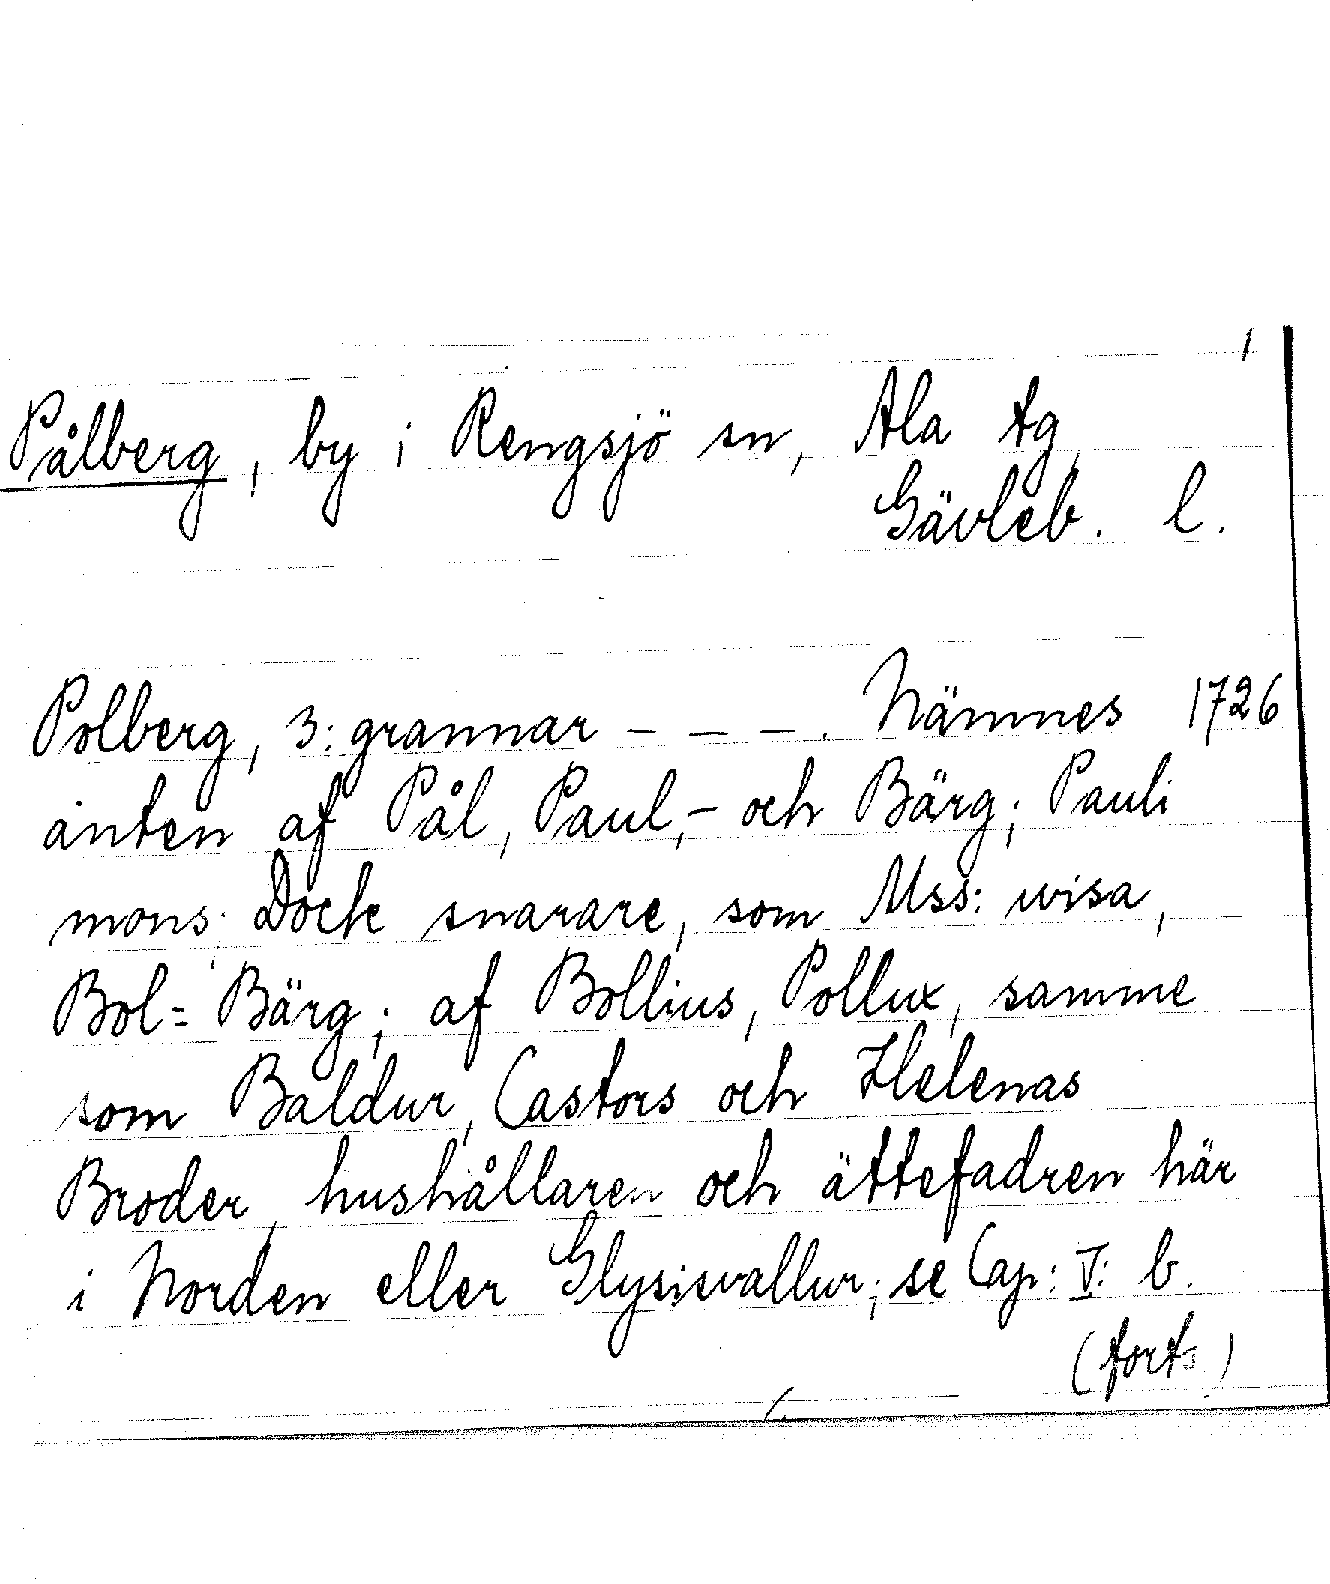 1
Pålberg, by i Rengsjö sn, Ala tg
Gävleb. l.
Polberg, 3: grannar - - - . Nämnes 1726
änten af Pål, Paul,- och Bärg; Pauli
mons; Dock snarare, som Mss: wisa,
Bol= Bärg; af Bollius, Pollux, samme
som Baldur, Castors och Helenas
Broder, hushållaren och ättefadren här
i Norden eller Glysisvallur; se Cap: V: b.
(forts.)